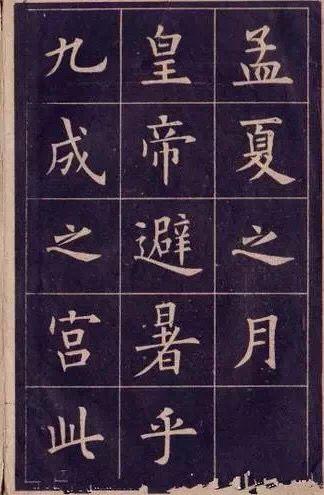 孟夏之月
皇帝避暑乎
九成之宮此